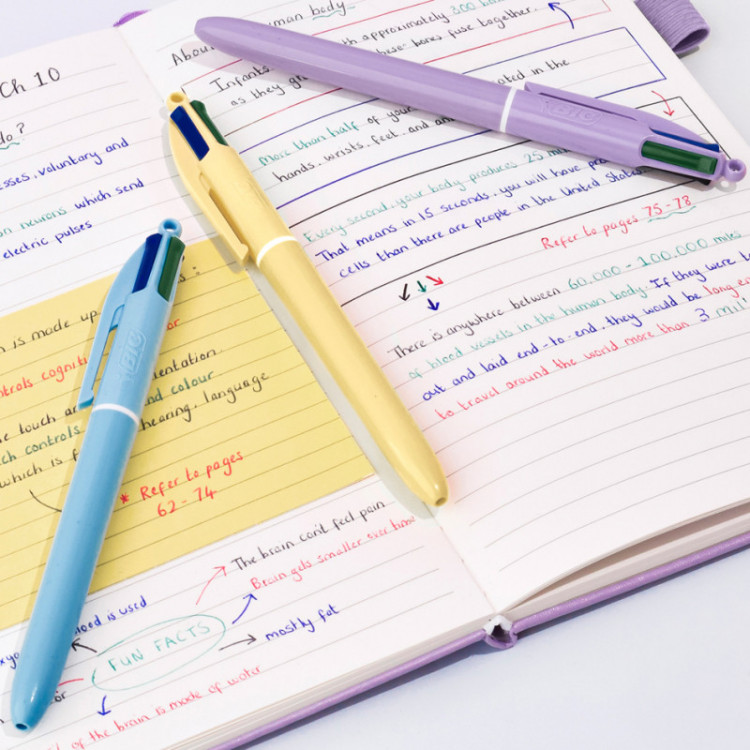 Ch 10
do?
voluntary and
neurons which send
electric pulses
is made up
or
controls
entation
touch
and colour
controls
hearing, language
which is
* Refer to pages
62 - 74
The brain can't feel pain
Brain gets smaller over time
blood is used
mostly fat
FUN FACTS
of the brain is made of water
About
human body
approximately 300
Infants
these bones fuse together.
as they
More than half of your
located in the
hands, wrists, feet, and
Every second, your body produces 25
That means in 15 seconds, you will have
cells than there are people in the United States
Refer to pages 75 - 78
There is anywhere between 60.000 - 100.000 miles
of blood vessels in the human body. If they were
out and laid end-to-end, they would be long
to travel around the world more than 3
BIC
BIC
BIC